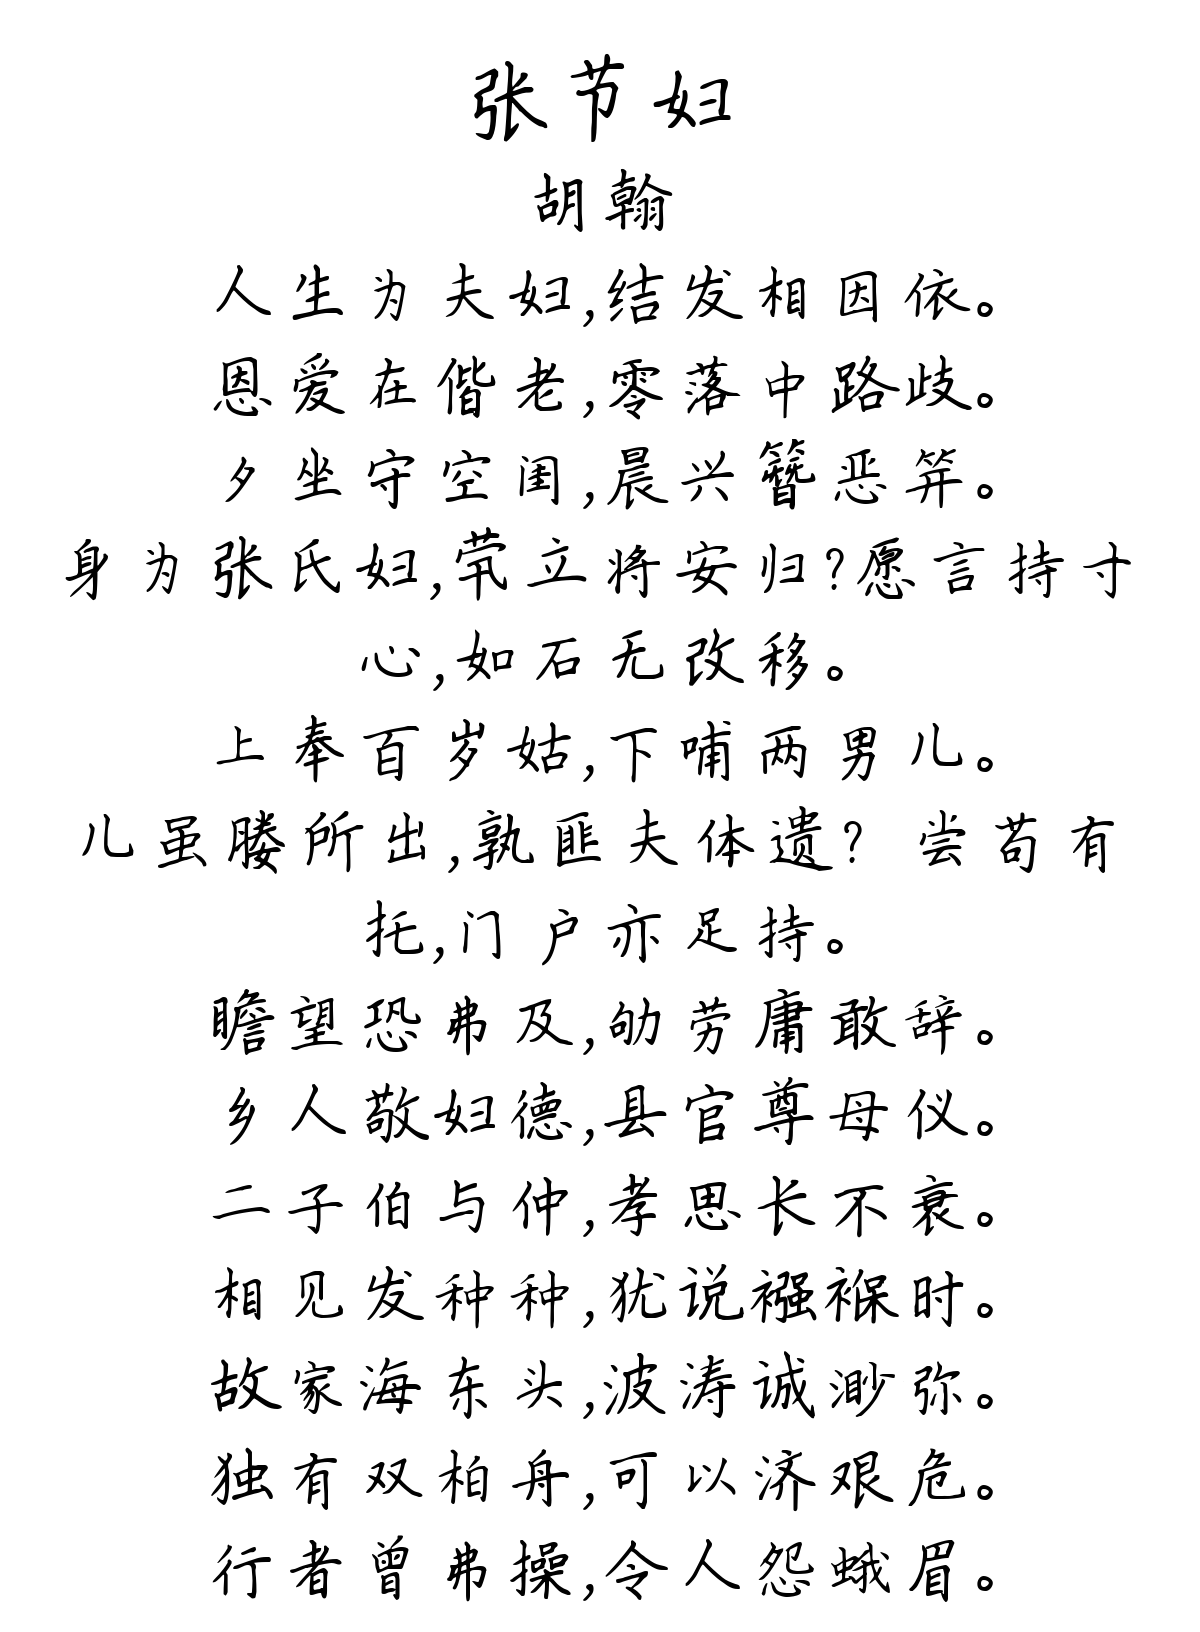 张节妇
胡翰
人生为夫妇,结发相因依。
恩爱在偕老,零落中路歧。
夕坐守空闺,晨兴簪恶笄。
身为张氏妇,茕立将安归?愿言持寸
心,如石无改移。
上奉百岁姑,下哺两男儿。
儿虽媵所出,孰匪夫体遗? 尝苟有
托,门户亦足持。
瞻望恐弗及,劬劳庸敢辞。
乡人敬妇德,县官尊母仪。
二子伯与仲,孝思长不衰。
相见发种种,犹说襁褓时。
故家海东头,波涛诚渺弥。
独有双柏舟,可以济艰危。
行者曾弗操,令人怨蛾眉。